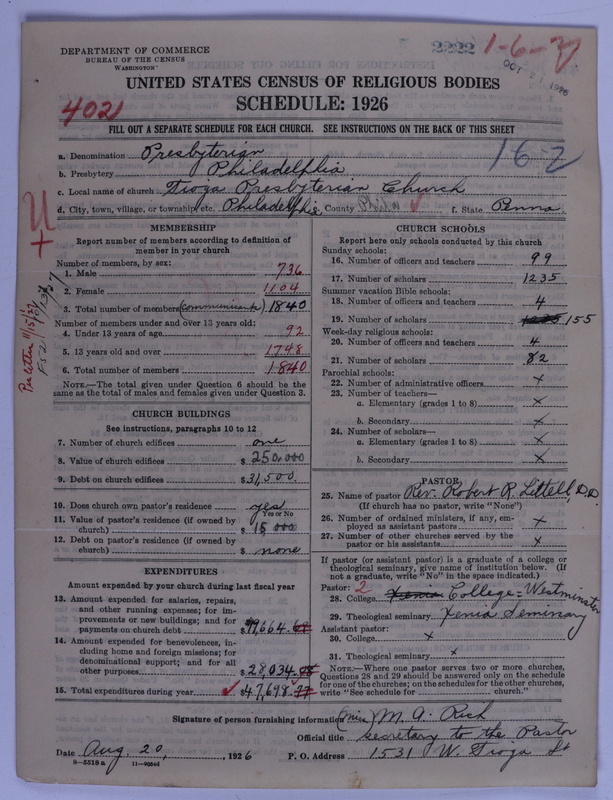 DEPARTMENT OF COMMERCE
BUREAU OF THE CENSUS
WASHINGTON
2222 1-6-
OCT 2 1926
UNITED STATES CENSUS OF RELIGIOUS BODIES
SCHEDULE: 1926
4021
FILL OUT A SEPARATE SCHEDULE FOR EACH CHURCH. SEE INSTRUCTIONS ON THE BACK OF THIS SHEET
16-2
a. Denomination Presbyterian
b. Presbytery Philadelphia
c. Local name of church Tioga Presbyterian Church
d. City, town, village, or township, etc. Philadelphia County Phila f. State Penna.
MEMBERSHIP
Report number of members according to definition of member in your church
Number of members, by sex:
1. Male 736
2. Female 1104
3. Total number of members (communicants) 1840
Number of members under and over 13 years old:
4. Under 13 years of age 92
5. 13 years old and over 1748
6. Total number of members 1840
NOTE.—The total given under Question 6 should be the same as the total of males and females given under Question 3.
Per letter 11/15/27
CHURCH BUILDINGS
See instructions, paragraphs 10 to 12
7. Number of church edifices one
8. Value of church edifices $ 250,000
9. Debt on church edifices $ 31,500.
10. Does church own pastor's residence? yes
Yes or No
11. Value of pastor's residence (if owned by church) $ 15 000
12. Debt on pastor's residence (if owned by church) $ none
EXPENDITURES
Amount expended by your church during last fiscal year
13. Amount expended for salaries, repairs, and other running expenses; for improvements or new buildings; and for payments on church debt $ 19,664.
14. Amount expended for benevolences, including home and foreign missions; for denominational support; and for all other purposes $ 28,034.
15. Total expenditures during year $ 47,698.
CHURCH SCHOOLS
Report here only schools conducted by this church
Sunday schools:
16. Number of officers and teachers 99
17. Number of scholars 1235
Summer vacation Bible schools:
18. Number of officers and teachers 4
19. Number of scholars 155
Week-day religious schools:
20. Number of officers and teachers 4
21. Number of scholars 82
Parochial schools:
22. Number of administrative officers x
23. Number of teachers—
a. Elementary (grades 1 to 8) x
b. Secondary x
24. Number of scholars—
a. Elementary (grades 1 to 8) x
b. Secondary x
PASTOR
25. Name of pastor Rev. Robert R. Littell, D.D.
(If church has no pastor, write "None")
26. Number of ordained ministers, if any, employed as assistant pastors x
27. Number of other churches served by the pastor or his assistants x
If pastor (or assistant pastor) is a graduate of a college or theological seminary, give name of institution below. (If not a graduate, write "No" in the space indicated.)
Pastor: 2
28. College Xenia College-Westminster
29. Theological seminary Xenia Seminary
Assistant pastor:
30. College x
31. Theological seminary x
NOTE.—Where one pastor serves two or more churches, Questions 28 and 29 should be answered only on the schedule for one of the churches; on the schedules for the other churches, write "See schedule for ........ church."
Signature of person furnishing information (Miss) M. A. Rich
Official title secretary to the Pastor
Date Aug. 20, 1926 P. O. Address 1531 W. Tioga St
8-5518 a